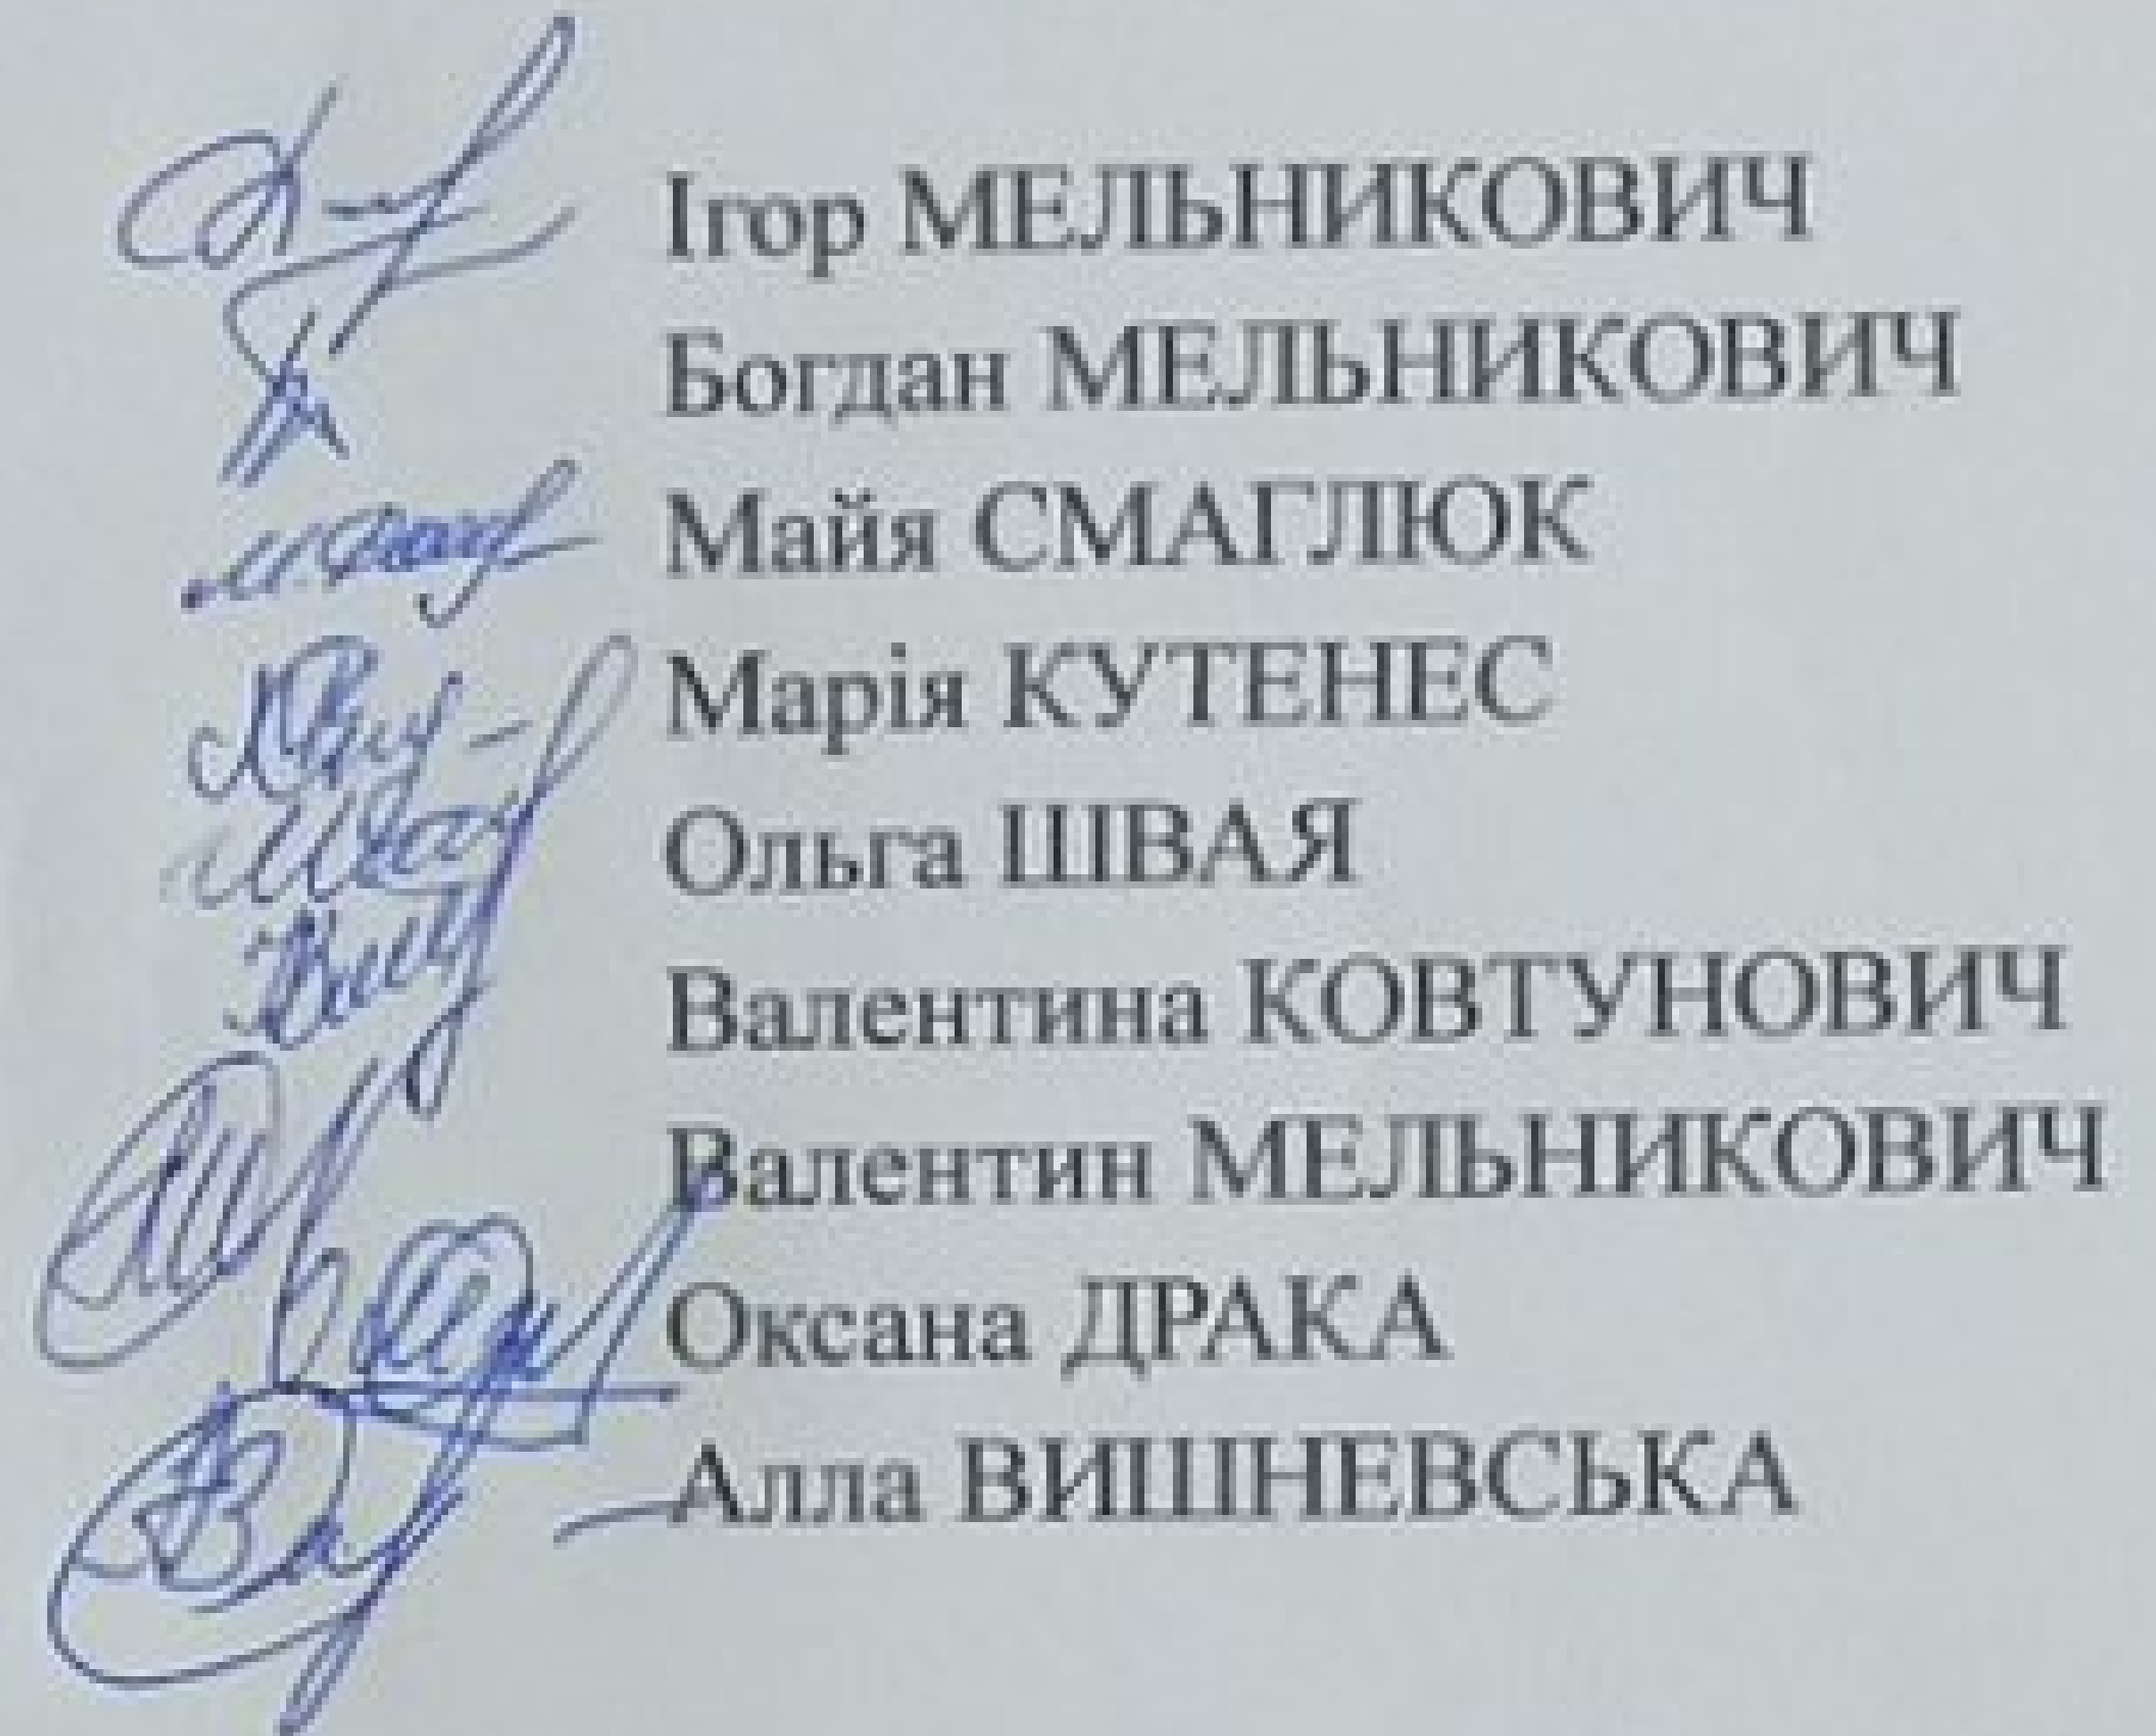 Ігор МЕЛЬНИКОВИЧ
Богдан МЕЛЬНИКОВИЧ
Майя СМАГЛЮК
Марія КУТЕНЕС
Ольга ШВАЯ
Валентина КОВТУНОВИЧ
Валентин МЕЛЬНИКОВИЧ
Оксана ДРАКА
Алла ВИШНЕВСЬКА